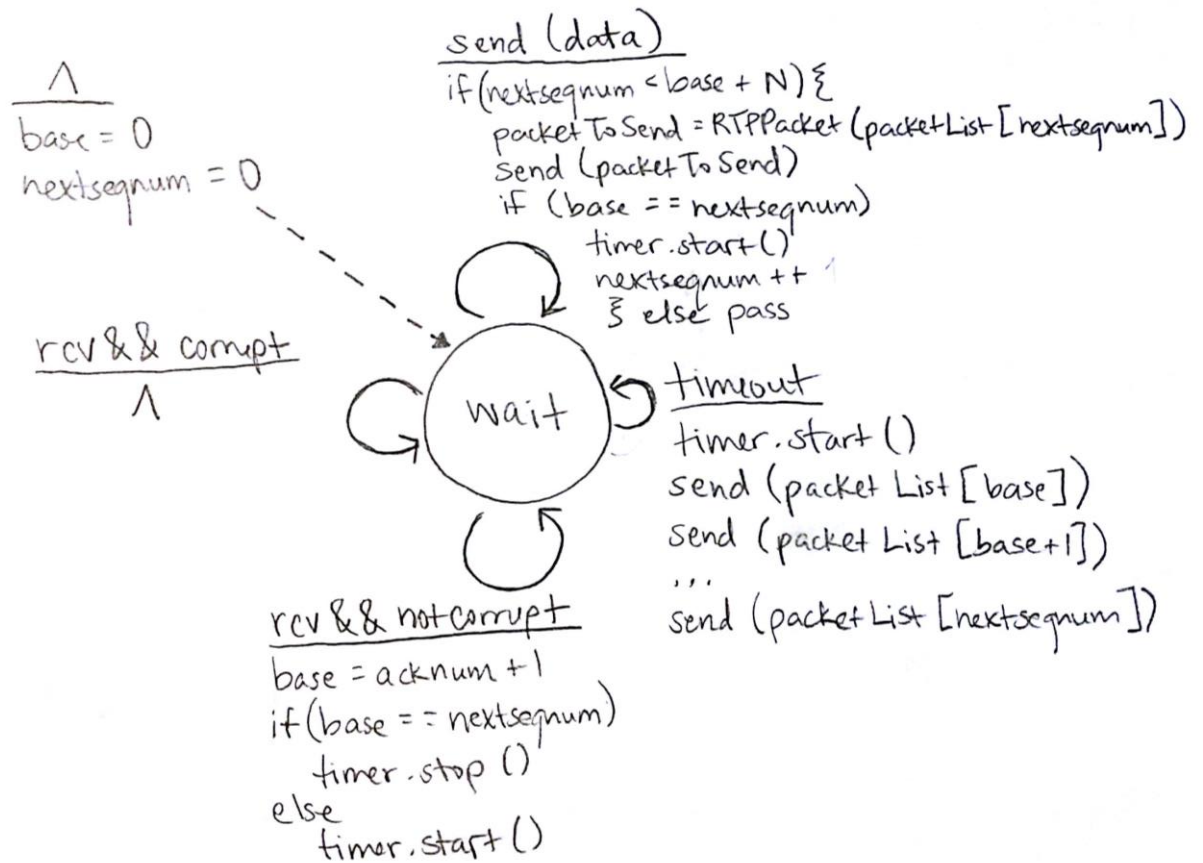 Λ
base = 0
nextseqnum = 0
send (data)
if (nextseqnum < base + N) {
packetToSend = RTPPacket (packetList [nextseqnum])
send (packetToSend)
if (base == nextseqnum)
timer.start()
nextseqnum ++
} else pass
rcv && corrupt
Λ
wait
timeout
timer.start ()
send (packet List [base])
send (packet List [base+1])
...
send (packetList [nextseqnum])
rcv && notcorrupt
base = acknum +1
if (base == nextseqnum)
timer.stop ()
else
timer.start ()